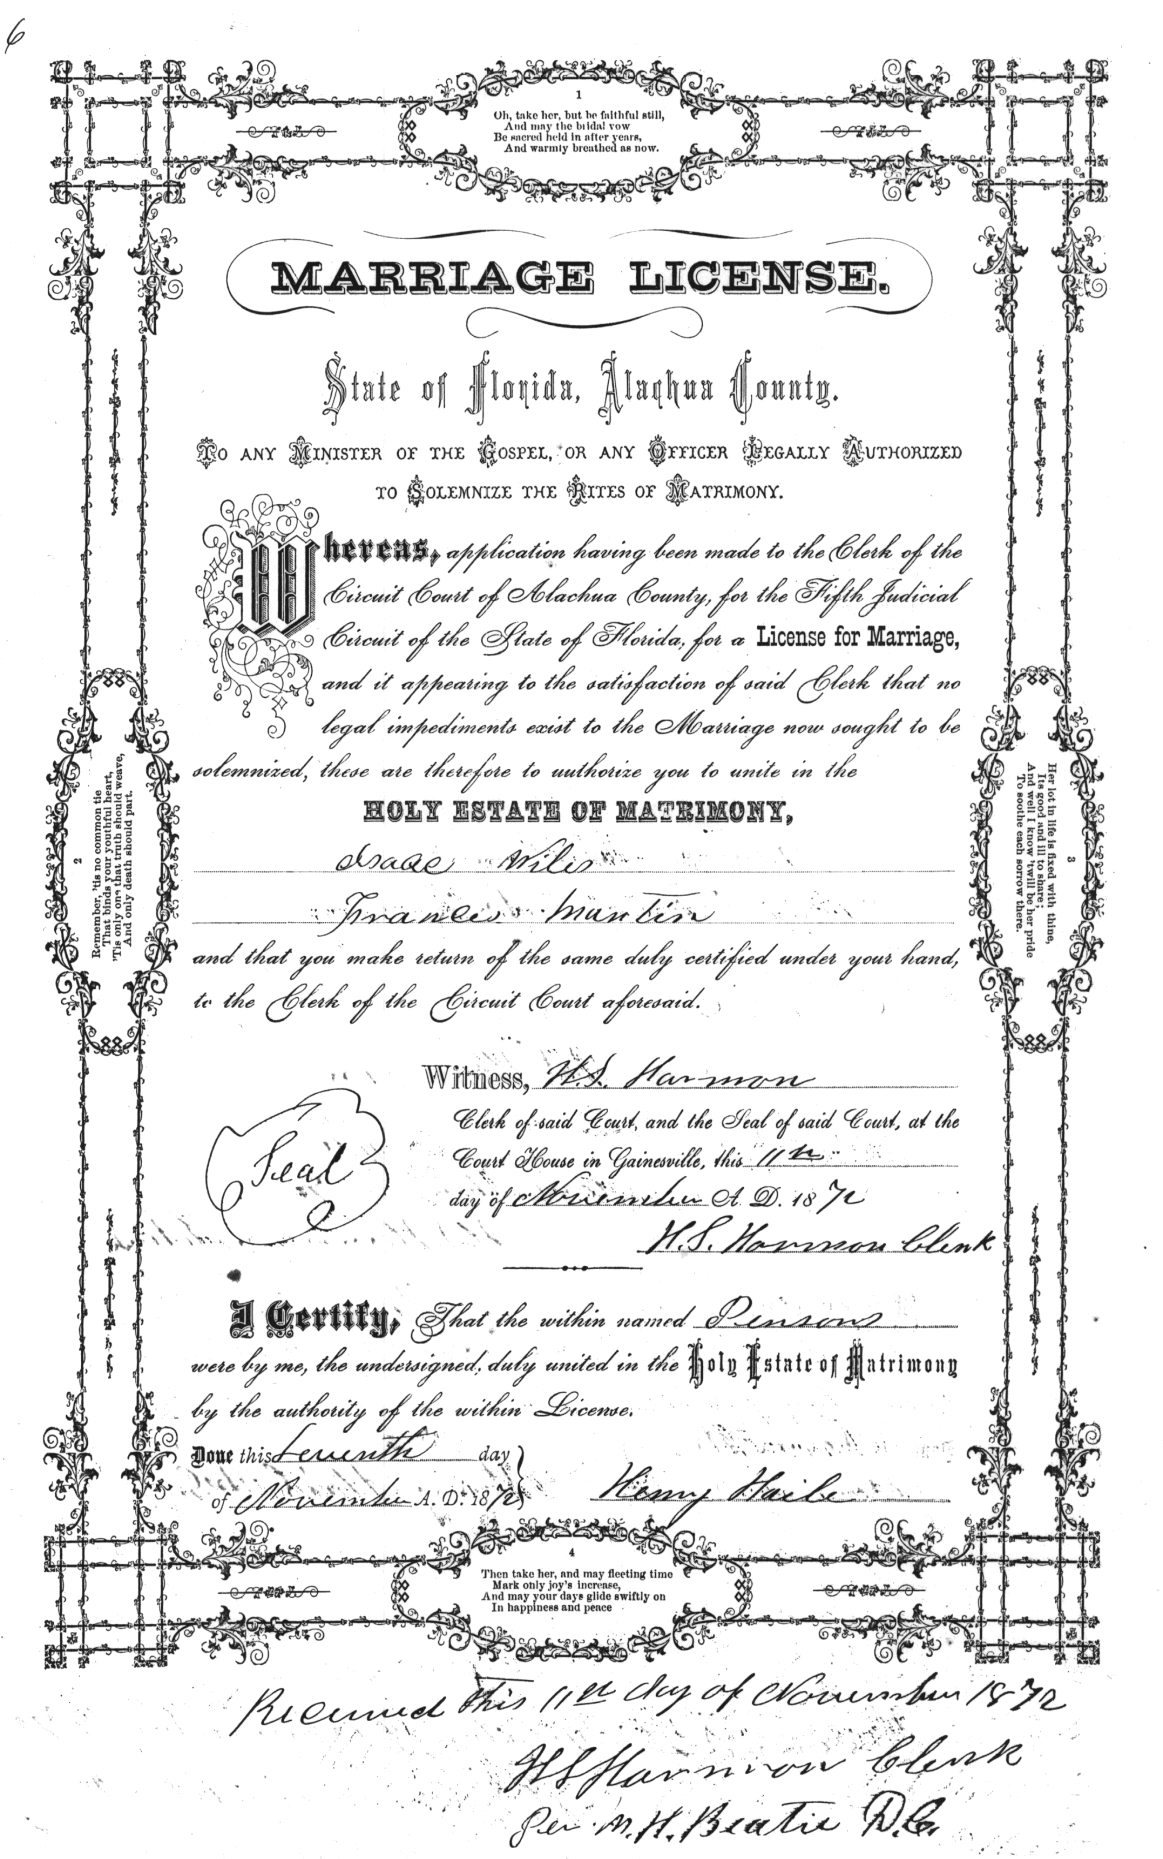 6
1
Oh, take her, but be faithful still,
And may the bridal vow
Be sacred held in after years,
And warmly breathed as now.
MARRIAGE LICENSE.
State of Florida, Alachua County.
TO ANY MINISTER OF THE GOSPEL, OR ANY OFFICER LEGALLY AUTHORIZED
TO SOLEMNIZE THE RITES OF MATRIMONY.
Whereas, application having been made to the Clerk of the
Circuit Court of Alachua County, for the Fifth Judicial
Circuit of the State of Florida, for a License for Marriage,
and it appearing to the satisfaction of said Clerk that no
legal impediments exist to the Marriage now sought to be
solemnized, these are therefore to authorize you to unite in the
HOLY ESTATE OF MATRIMONY,
Isaac Wiles
Frances Martin
and that you make return of the same duly certified under your hand,
to the Clerk of the Circuit Court aforesaid.
2
Remember, 'tis no common tie
That binds your youthful heart,
'Tis only one that truth should weave,
And only death should part.
3
Her lot in life is fixed with thine,
Its good and ill to share;
And well I know 'twill be her pride
To soothe each sorrow there.
Witness, H.S. Harmon
Clerk of said Court, and the Seal of said Court, at the
Court House in Gainesville, this 11th
day of November A. D. 1872
Seal
H.S. Harmon Clerk
I Certify, That the within named Persons
were by me, the undersigned, duly united in the Holy Estate of Matrimony
by the authority of the within License.
Done this Seventh day
of November A. D. 1872
Henry Haile
4
Then take her, and may fleeting time
Mark only joy's increase,
And may your days glide swiftly on
In happiness and peace
Received this 11th day of November 1872
H S Harmon Clerk
Per M. H. Beatie D.C.